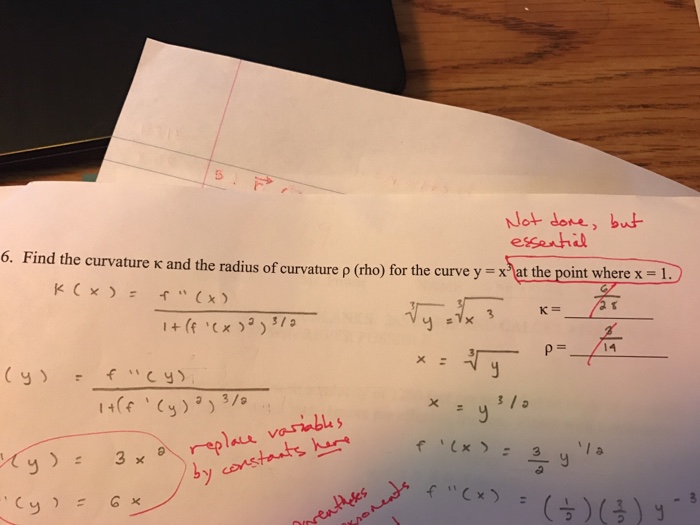 B.
Not done, but
essential
6. Find the curvature κ and the radius of curvature ρ (rho) for the curve y = x³ at the point where x = 1.
K(x) = f''(x) / 1+(f'(x)²)^3/2
∛y = ∛x³
κ = 6/28
x = ∛y
ρ = 3/14
(y) = f''(y) / 1+(f'(y)²)^3/2
x = y^3/2
replace variables
by constants here
'(y) = 3x²
f'(x) = 3/2 y^1/2
'(y) = 6x
f''(x) = (1/2)(3/2) y^-3